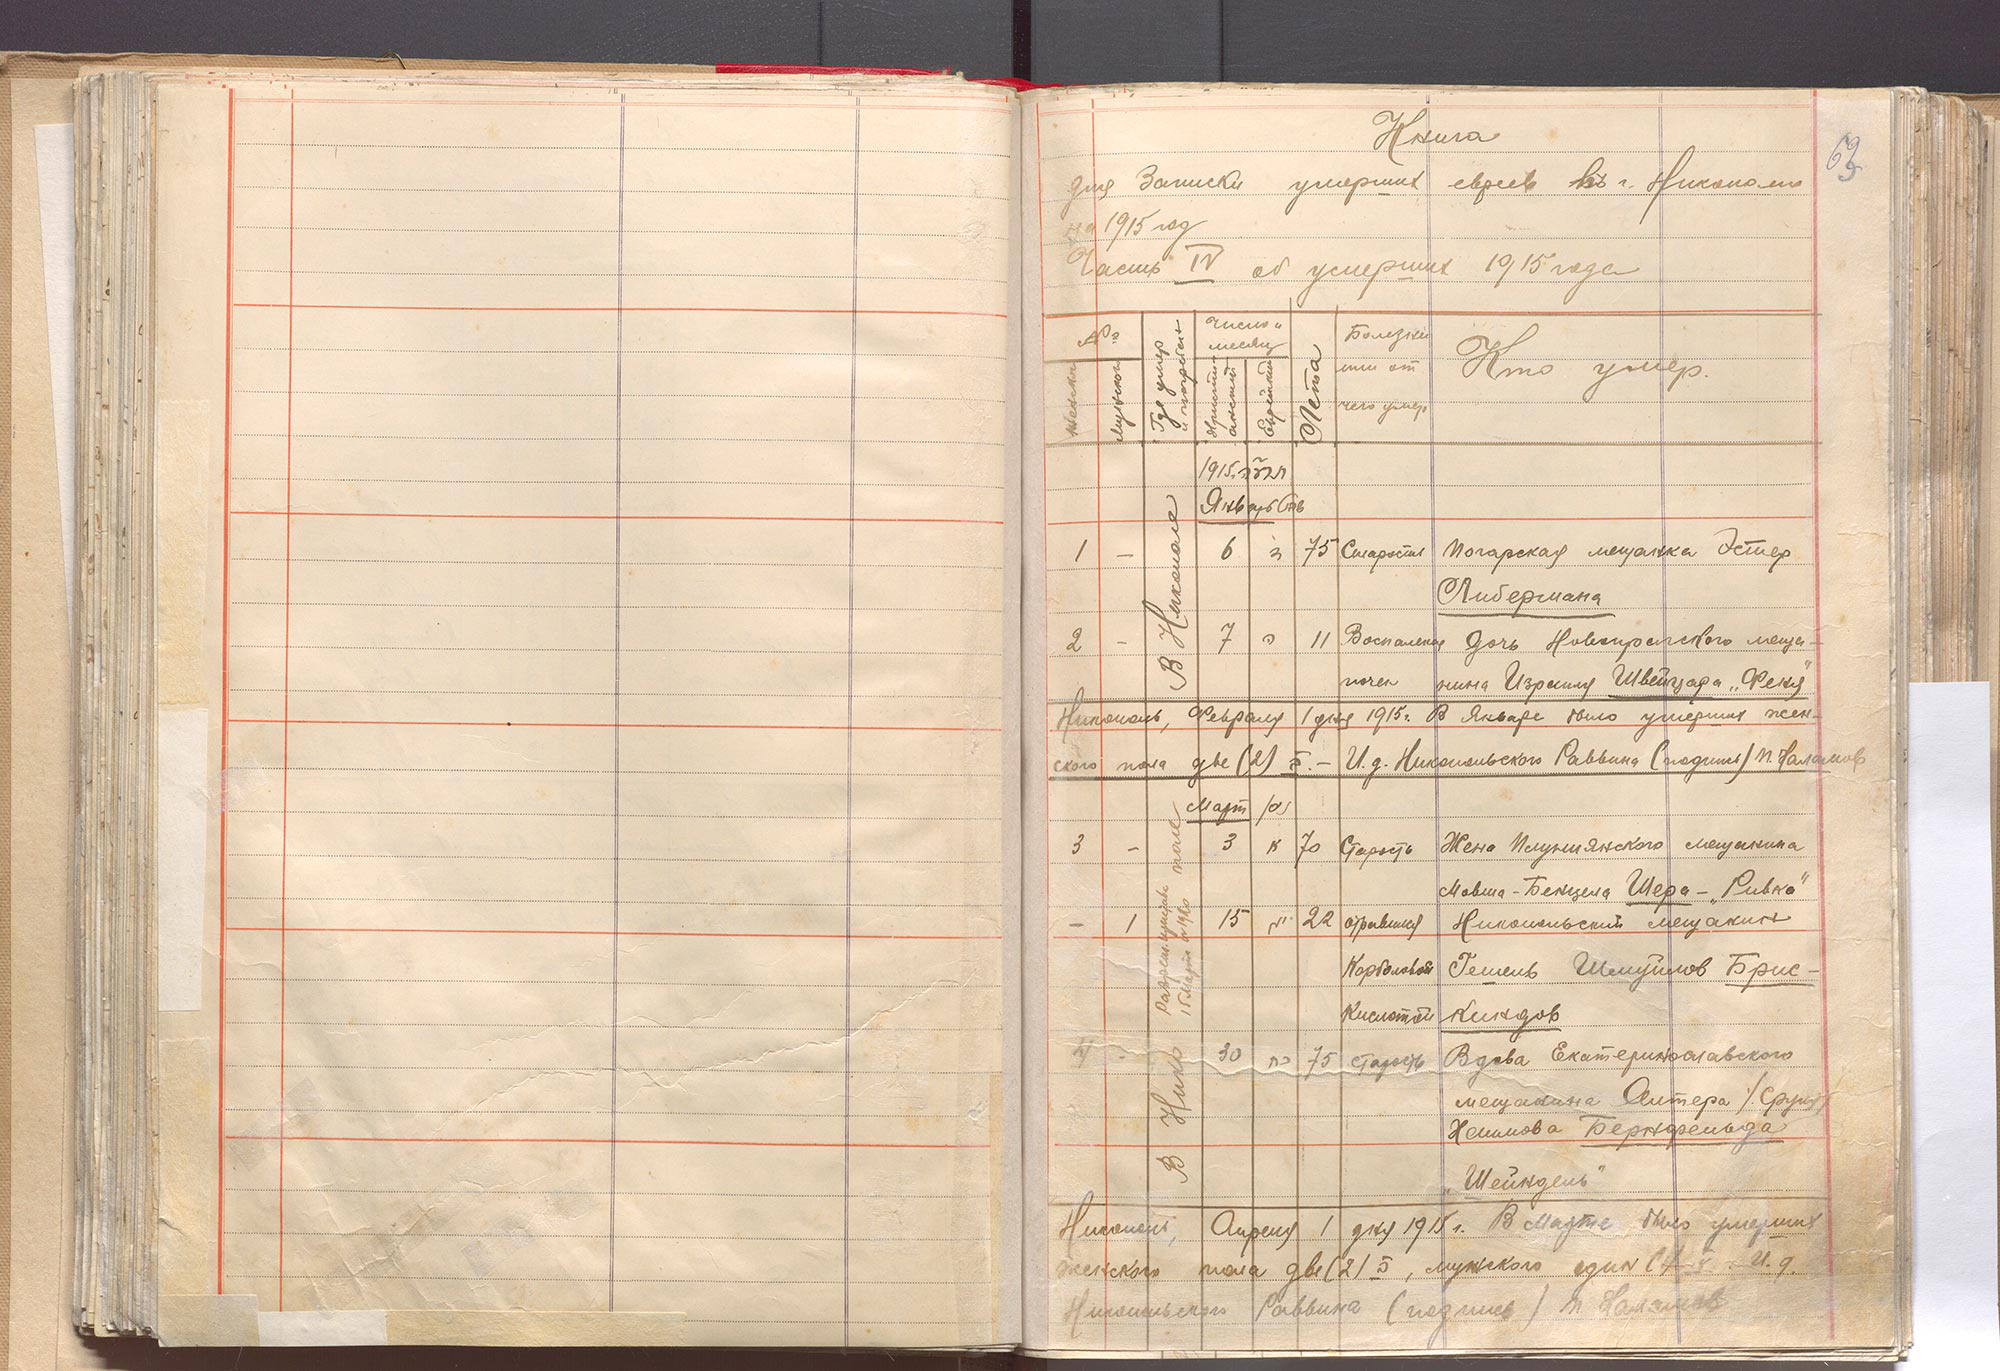 63
Книга
для Записки умерших евреев въ г. Никополе
на 1915 год
Часть IV об умерших 1915 года
№№
Женского
Мужского
Где умер и погребен
Число и месяц
Христианский
Еврейский
Лета
Болезни или от чего умер
Кто умер.
1915 г.
Январь
В Никополе
1 – 6 75 Старость Погарская мещанка Эстер
Либермана
2 – 7 11 Воспаление Дочь Новопражского меща-
почек нина Израиля Швейцара „Феня"
Никополь, Февраля 1 дня 1915 г. В Январе было умерших жен-
ского пола две (2) – И. д. Никопольского Раввина (подпись)
Март
В Никополе
3 – 3 70 Старость Жена мещанина
Мовша-Бенцела Шера – „Ривка"
– 1 15 22 отравился Никопольский мещанин
Карболовой Гешель Шмуйлов Брис-
Кислотой киндов
4 - 30 75 старость Вдова Екатеринославского
мещанина Алтера
Бернфельда
„Шейндель"
Никополь, Апреля 1 дня 1915 г. В Марте было умерших
женского пола две (2), мужского один И. д.
Никопольского Раввина (подпись)